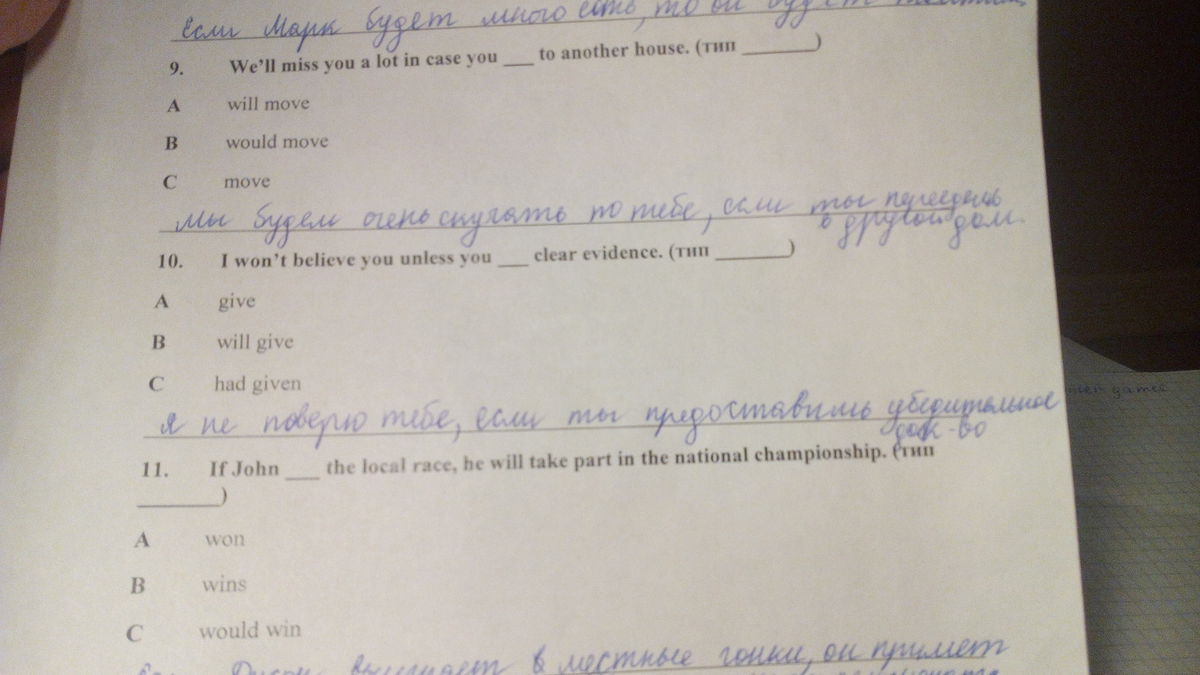 Если Марк будет много есть, то он будет
9. We'll miss you a lot in case you ___ to another house. (тип _______)
A will move
B would move
C move
Мы будем очень скучать по тебе, если ты переедешь
в другой дом.
10. I won't believe you unless you ___ clear evidence. (тип _______)
A give
B will give
C had given
Я не поверю тебе, если ты предоставишь убедительное
док-во
11. If John ___ the local race, he will take part in the national championship. (тип
_______)
A won
B wins
C would win
выиграет в местные гонки, он примет